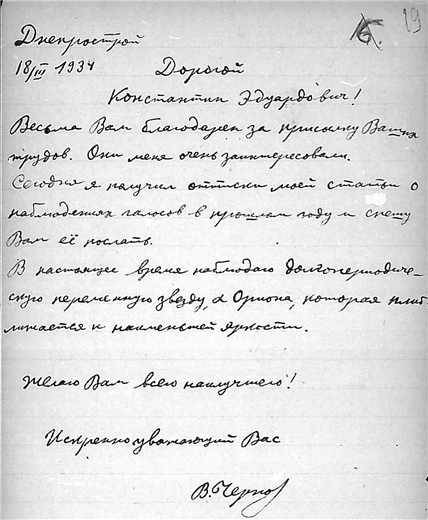 19
Днепрострой
18/III 1934
Дорогой
Константин Эдуардович!
Весьма Вам благодарен за присылку Ваших
трудов. Они меня очень заинтересовали.
Сегодня я получил оттиски моей статьи о
наблюдениях галосов в прошлом году и спешу
Вам её послать.
В настоящее время наблюдаю долгопериодиче-
скую переменную звезду, α Ориона, которая приб-
лижается к наименьшей яркости.
Желаю Вам всего наилучшего!
Искренно уважающий Вас
В. Чернов